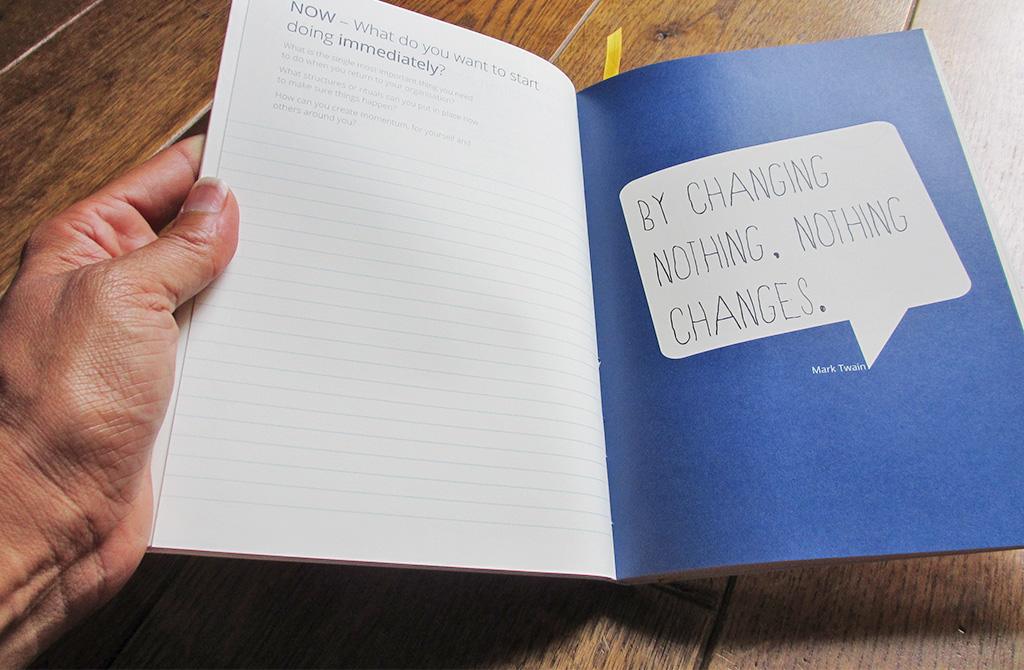 NOW – What do you want to start
doing immediately?
What is the single most important thing you need
to do when you return to your organisation?
What structures or rituals can you put in place now
to make sure things happen?
How can you create momentum, for yourself and
others around you?
BY CHANGING
NOTHING, NOTHING
CHANGES.
Mark Twain